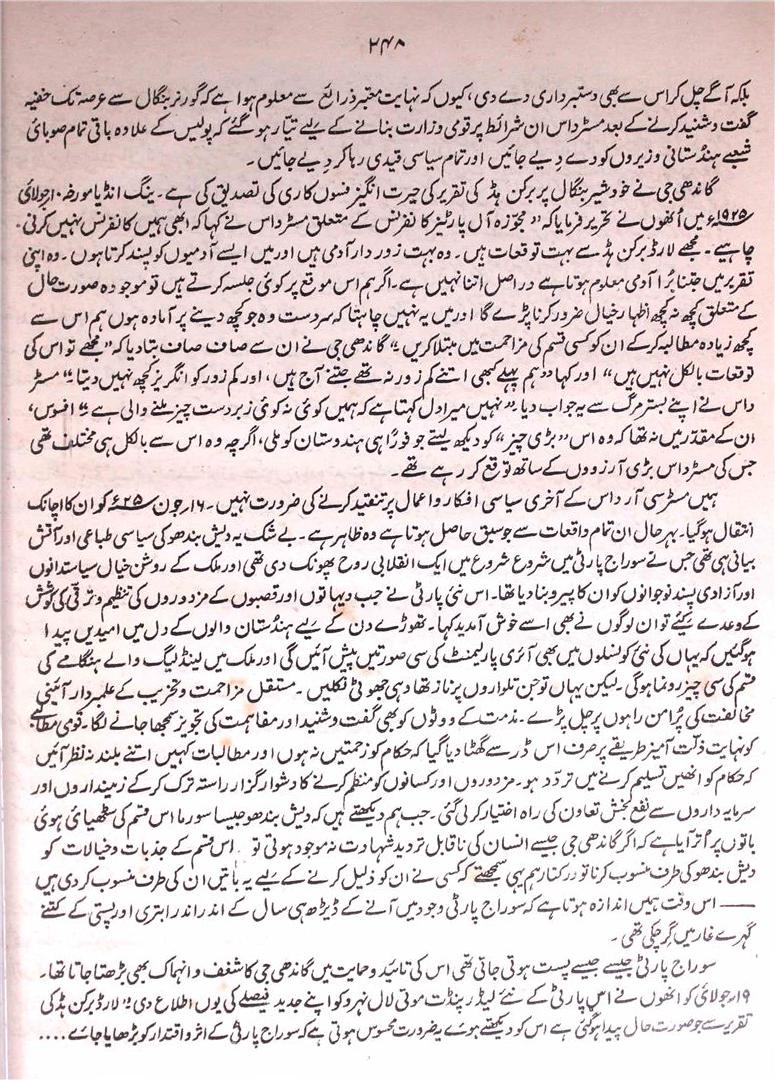 ۲۴۸
بلکہ آگے چل کر اس سے بھی دستبرداری دے دی، کیوں کہ نہایت معتبر ذرائع سے معلوم ہوا ہے کہ گورنر بنگال سے عرصہ تک خفیہ
گفت و شنید کرنے کے بعد مسٹر داس ان شرائط پر قومی وزارت بنانے کے لیے تیار ہو گئے کہ پولیس کے علاوہ باقی تمام صوبائی
شعبے ہندستانی وزیروں کو دے دیے جائیں اور تمام سیاسی قیدی رہا کر دیے جائیں۔
گاندھی جی نے خود شیر بنگال پر برکن ہڈ کی تقریر کی حیرت انگیز فسوں کاری کی تصدیق کی ہے۔ ینگ انڈیا مورخہ ۱۰؍جولائی
۱۹۲۵ء میں اُنھوں نے تحریر فرمایا کہ "مجوزہ آل پارٹیز کانفرنس کے متعلق مسٹر داس نے کہا کہ ابھی ہمیں کانفرنس نہیں کرنی
چاہیے۔ مجھے لارڈ برکن ہڈ سے بہت توقعات ہیں۔ وہ بہت زوردار آدمی ہیں اور میں ایسے آدمیوں کو پسند کرتا ہوں۔ وہ اپنی
تقریر میں جتنا بُرا آدمی معلوم ہوتا ہے دراصل اتنا نہیں ہے۔ اگر ہم اس موقع پر کوئی جلسہ کرتے ہیں تو موجودہ صورت حال
کے متعلق کچھ نہ کچھ اظہار خیال ضرور کرنا پڑے گا اور میں یہ نہیں چاہتا کہ سردست وہ جو کچھ دینے پر آمادہ ہوں ہم اس سے
کچھ زیادہ مطالبہ کر کے ان کو کسی قسم کی مزاحمت میں مبتلا کریں" گاندھی جی نے ان سے صاف صاف بتا دیا کہ "مجھے تو اس کی
توقعات بالکل نہیں ہیں" اور کہا "ہم پہلے کبھی اتنے کم زور نہ تھے جتنے آج ہیں، اور کم زور کو انگریز کچھ نہیں دیتا" مسٹر
داس نے اپنے بستر مرگ سے یہ جواب دیا "نہیں میرا دل کہتا ہے کہ ہمیں کوئی نہ کوئی زبردست چیز ملنے والی ہے" افسوس،
ان کے مقدر میں نہ تھا کہ وہ اس "بڑی چیز" کو دیکھ لیتے جو فوراً ہی ہندوستان کو ملی، اگرچہ وہ اس سے بالکل ہی مختلف تھی
جس کی مسٹر داس بڑی آرزووں کے ساتھ توقع کر رہے تھے۔
ہمیں مسٹر سی آر داس کے آخری سیاسی افکار و اعمال پر تنقید کرنے کی ضرورت نہیں۔ ۱۶؍جون ۱۹۲۵ء کو ان کا اچانک
انتقال ہو گیا۔ بہر حال ان تمام واقعات سے جو سبق حاصل ہوتا ہے وہ ظاہر ہے۔ بے شک یہ دیش بندھو کی سیاسی طباعی اور آتش
بیانی ہی تھی جس نے سوراج پارٹی میں شروع شروع میں ایک انقلابی روح پھونک دی تھی اور ملک کے روشن خیال سیاستدانوں
اور آزادی پسند نوجوانوں کو ان کا پیرو بنا دیا تھا۔ اس نئی پارٹی نے جب دیہاتوں اور قصبوں کے مزدوروں کی تنظیم و ترقی کی کوشش
کے وعدے کیے تو ان لوگوں نے بھی اسے خوش آمدید کہا۔ تھوڑے دن کے لیے ہندستان والوں کے دل میں امیدیں پیدا
ہو گئیں کہ یہاں کی نئی کونسلوں میں بھی آئری پارلیمنٹ کی سی صورتیں پیش آئیں گی اور ملک میں لینڈ لیگ والے ہنگامے کی
قسم کی سی چیز رونما ہو گی۔ لیکن یہاں تو جن تلواروں پر ناز تھا وہی جھوٹی نکلیں۔ مستقل مزاحمت و تخریب کے علمبردار آئینی
مخالفت کی پُرامن راہوں پر چل پڑے۔ مذمت کے ووٹوں کو بھی گفت و شنید اور مفاہمت کی تجویز سمجھا جانے لگا۔ قومی مطالبے
کو نہایت ذلت آمیز طریقے پر صرف اس ڈر سے گھٹا دیا گیا کہ حکام کو زحمتیں نہ ہوں اور مطالبات کہیں اتنے بلند نہ نظر آئیں
کہ حکام کو انھیں تسلیم کرنے میں تردّد ہو۔ مزدوروں اور کسانوں کو منظم کرنے کا دشوار گزار راستہ ترک کر کے زمینداروں اور
سرمایہ داروں سے نفع بخش تعاون کی راہ اختیار کر لی گئی۔ جب ہم دیکھتے ہیں کہ دیش بندھو جیسا سورما اس قسم کی سٹھیائی ہوئی
باتوں پر اُتر آیا ہے کہ اگر گاندھی جی جیسے انسان کی ناقابل تردید شہادت نہ موجود ہوتی تو اس قسم کے جذبات و خیالات کو
دیش بندھو کی طرف منسوب کرنا تو درکنار ہم یہی سمجھتے کہ کسی نے ان کو ذلیل کرنے کے لیے یہ باتیں ان کی طرف منسوب کر دی ہیں
—— اس وقت ہمیں اندازہ ہوتا ہے کہ سوراج پارٹی وجود میں آنے کے ڈیڑھ ہی سال کے اندر اندر ابتری اور پستی کے کتنے
گہرے غار میں گر چکی تھی۔
سوراج پارٹی جیسے جیسے پست ہوتی جاتی تھی اس کی تائید و حمایت میں گاندھی جی کا شغف و انہماک بھی بڑھتا جاتا تھا۔
۱۹؍جولائی کو انھوں نے اس پارٹی کے نئے لیڈر پنڈت موتی لال نہرو کو اپنے جدید فیصلے کی یوں اطلاع دی "لارڈ برکن ہڈ کی
تقریر سے جو صورت حال پیدا ہو گئی ہے اس کو دیکھتے ہوئے یہ ضرورت محسوس ہوتی ہے کہ سوراج پارٹی کے اثر و اقتدار کو بڑھایا جائے....